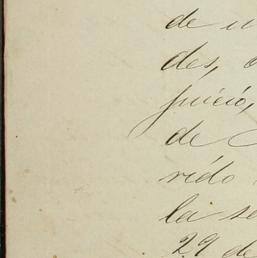 de u
des,
juicio,
de
rido
la se
29 de